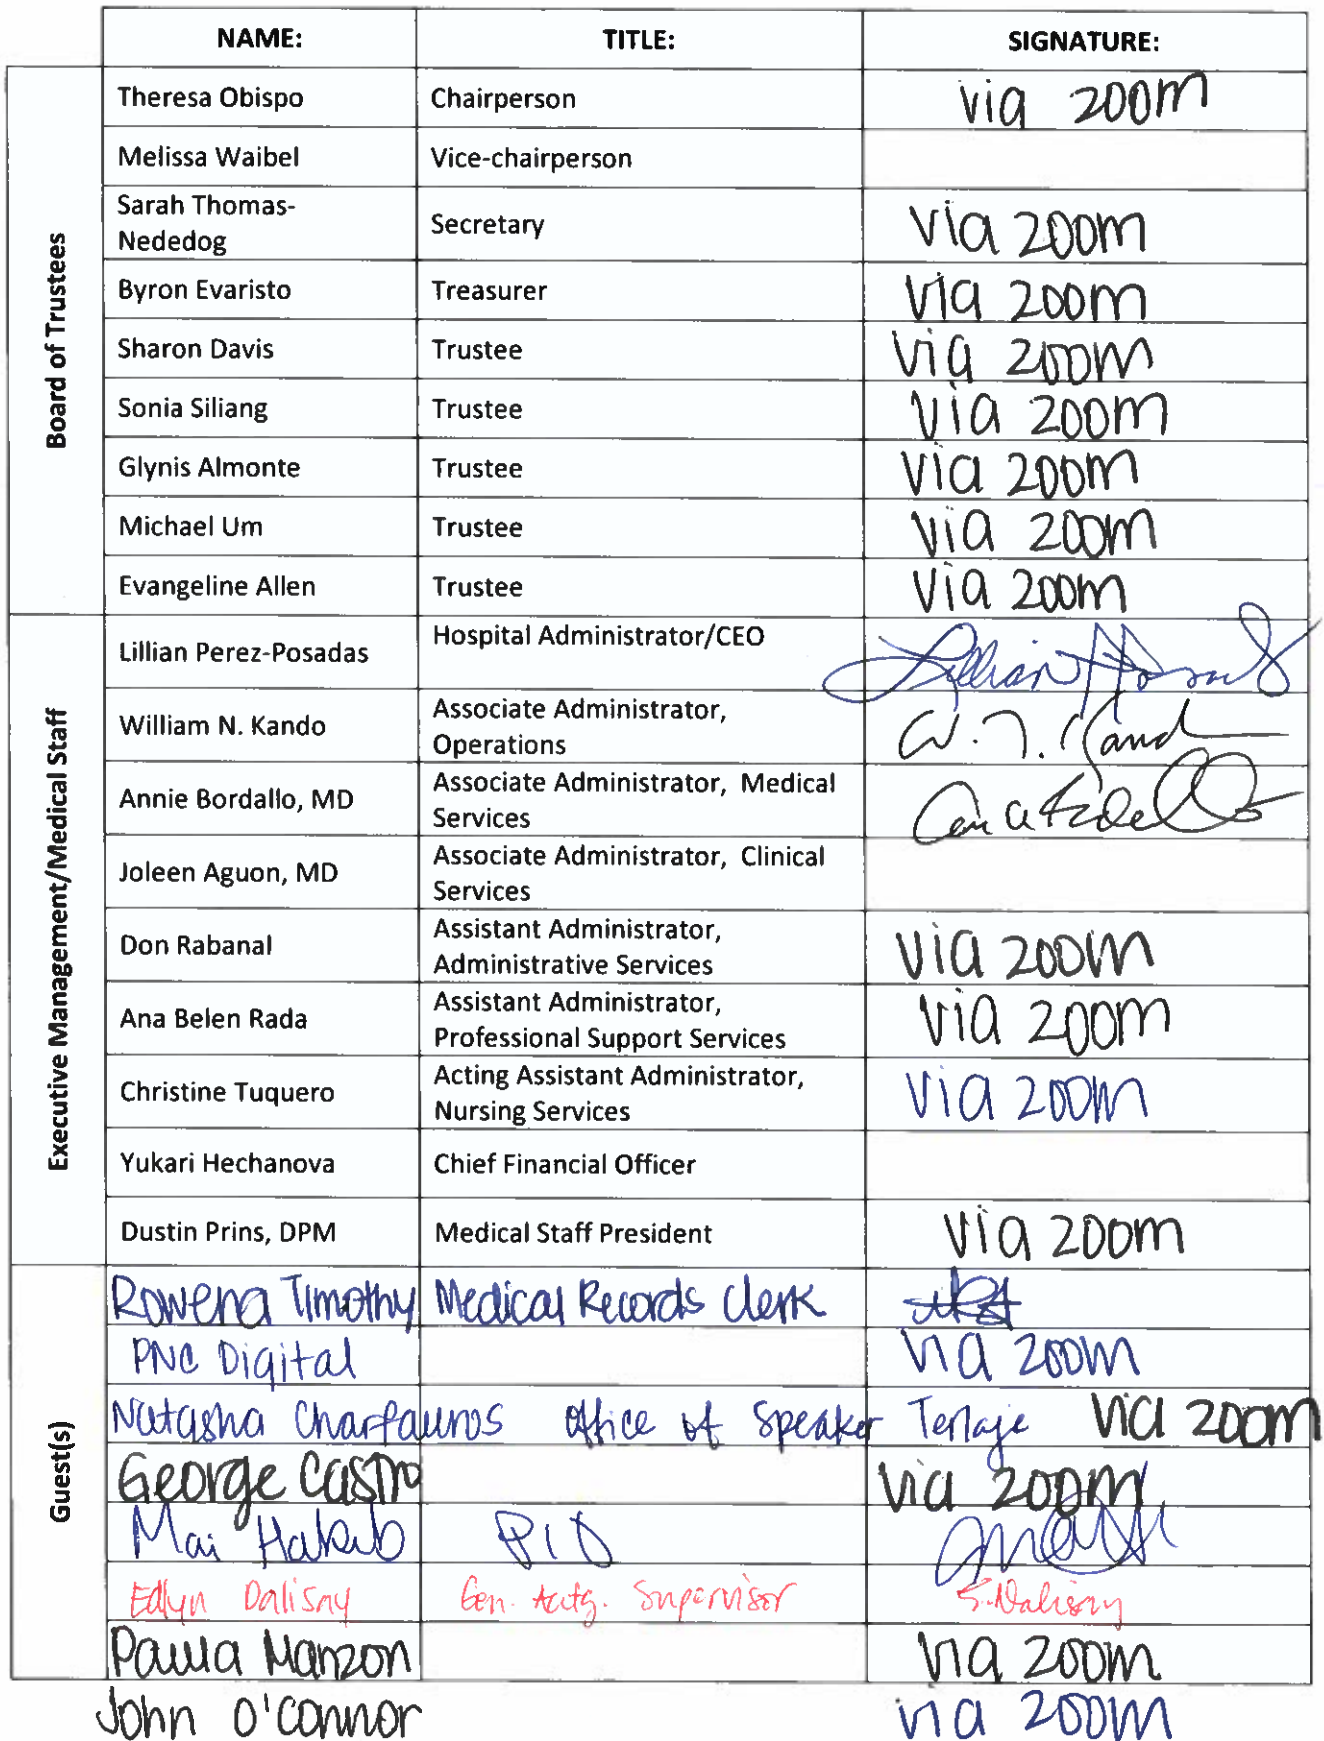 NAME: TITLE: SIGNATURE:
Board of Trustees
Theresa Obispo Chairperson via zoom
Melissa Waibel Vice-chairperson
Sarah Thomas-
Nededog Secretary via zoom
Byron Evaristo Treasurer via zoom
Sharon Davis Trustee via zoom
Sonia Siliang Trustee via zoom
Glynis Almonte Trustee via zoom
Michael Um Trustee via zoom
Evangeline Allen Trustee via zoom
Executive Management/Medical Staff
Lillian Perez-Posadas Hospital Administrator/CEO
William N. Kando Associate Administrator,
Operations
Annie Bordallo, MD Associate Administrator, Medical
Services
Joleen Aguon, MD Associate Administrator, Clinical
Services
Don Rabanal Assistant Administrator,
Administrative Services via zoom
Ana Belen Rada Assistant Administrator,
Professional Support Services via zoom
Christine Tuquero Acting Assistant Administrator,
Nursing Services via zoom
Yukari Hechanova Chief Financial Officer
Dustin Prins, DPM Medical Staff President via zoom
Guest(s)
Rowena Timothy Medical Records Clerk
PNC Digital via zoom
Natasha Charfauros Office of Speaker Terlaje via zoom
George Castro via zoom
Mai Habib PIO
Edlyn Dalisay Gen. Actg. Supervisor E. Dalisay
Paula Manzon via zoom
John O'Connor via zoom